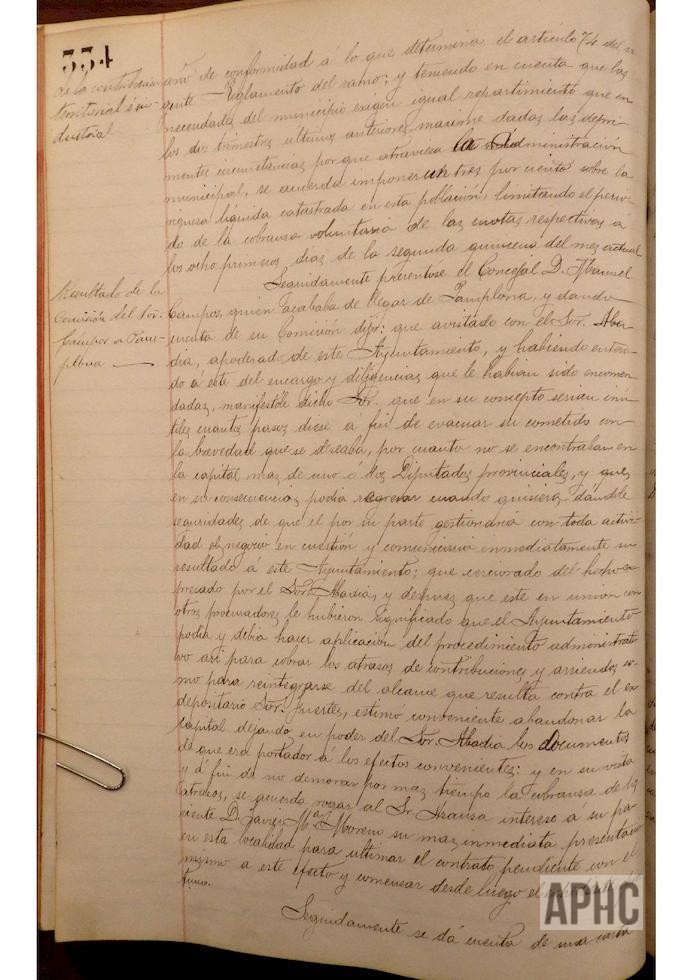 334
de la contribución
territorial é in-
dustrial
año de conformidad á lo que determina el artículo 74 del vi
gente Reglamento del ramo; y teniendo en cuenta que las
necesidades del municipio exigen igual repartimiento que en
los dos trimestres ultimos anteriores, maxime dadas las depri-
mentes circunstancias porque atraviesa la administración
municipal, se acuerda imponer un tres por ciento sobre la
riqueza líquida catastrada en esta población, limitando el perio-
do de la cobranza voluntaria de las cuotas respectivas a
los ocho primeros dias de la segunda quincena del mes actual
Resultado de la
comisión del Sor.
Campos a Pam-
plona
Seguidamente presentose el Concejal D. Manuel
Campos, quien acababa de llegar de Pamplona, y dando
cuenta de su Comisión dijo: que avistado con el Sor. Aba-
dia, apoderado de este Ayuntamiento, y habiendo entera-
do á este del encargo y diligencias que le habian sido encomen-
dadas, manifestóle dicho Sor. que en su concepto serian inú-
tiles cuantos pasos diese a fin de evacuar su cometido con
la brevedad que se deseaba, por cuanto no se encontraban en
la capital mas de uno ó dos Diputados provinciales, y que,
en su consecuencia, podia regresar cuando quisiera, dándole
seguridades de que el por su parte gestionaria con toda activi-
dad el negocio en cuestión y comunicaria inmediatamente su
resultado á este Ayuntamiento; que cerciorado del hecho ex
presado por el Sor. Abadia, y despues que este en union con
otros procuradores le hubieron significado que el Ayuntamiento
podia y debia hacer aplicación del procedimiento administrati
vo asi para cobrar los atrasos de contribuciones y arriendos co-
mo para reintegrarse del alcance que resulta contra el ex
depositario Sor. Fuertes, estimó conveniente abandonar la
capital dejando en poder del Sor. Abadia los documentos
de que era portador á los efectos convenientes: y en su vista
y á fin de no demorar por mas tiempo la cobranza de los
atrasos, se acuerda rogar al Sr. interese á su pa-
riente D. Javier Mª Moreno su mas inmediata presentación
en esta localidad para ultimar el contrato pendiente con el
mismo a este efecto y comensar desde luego el
Seguidamente se dá cuenta de una carta
APHC